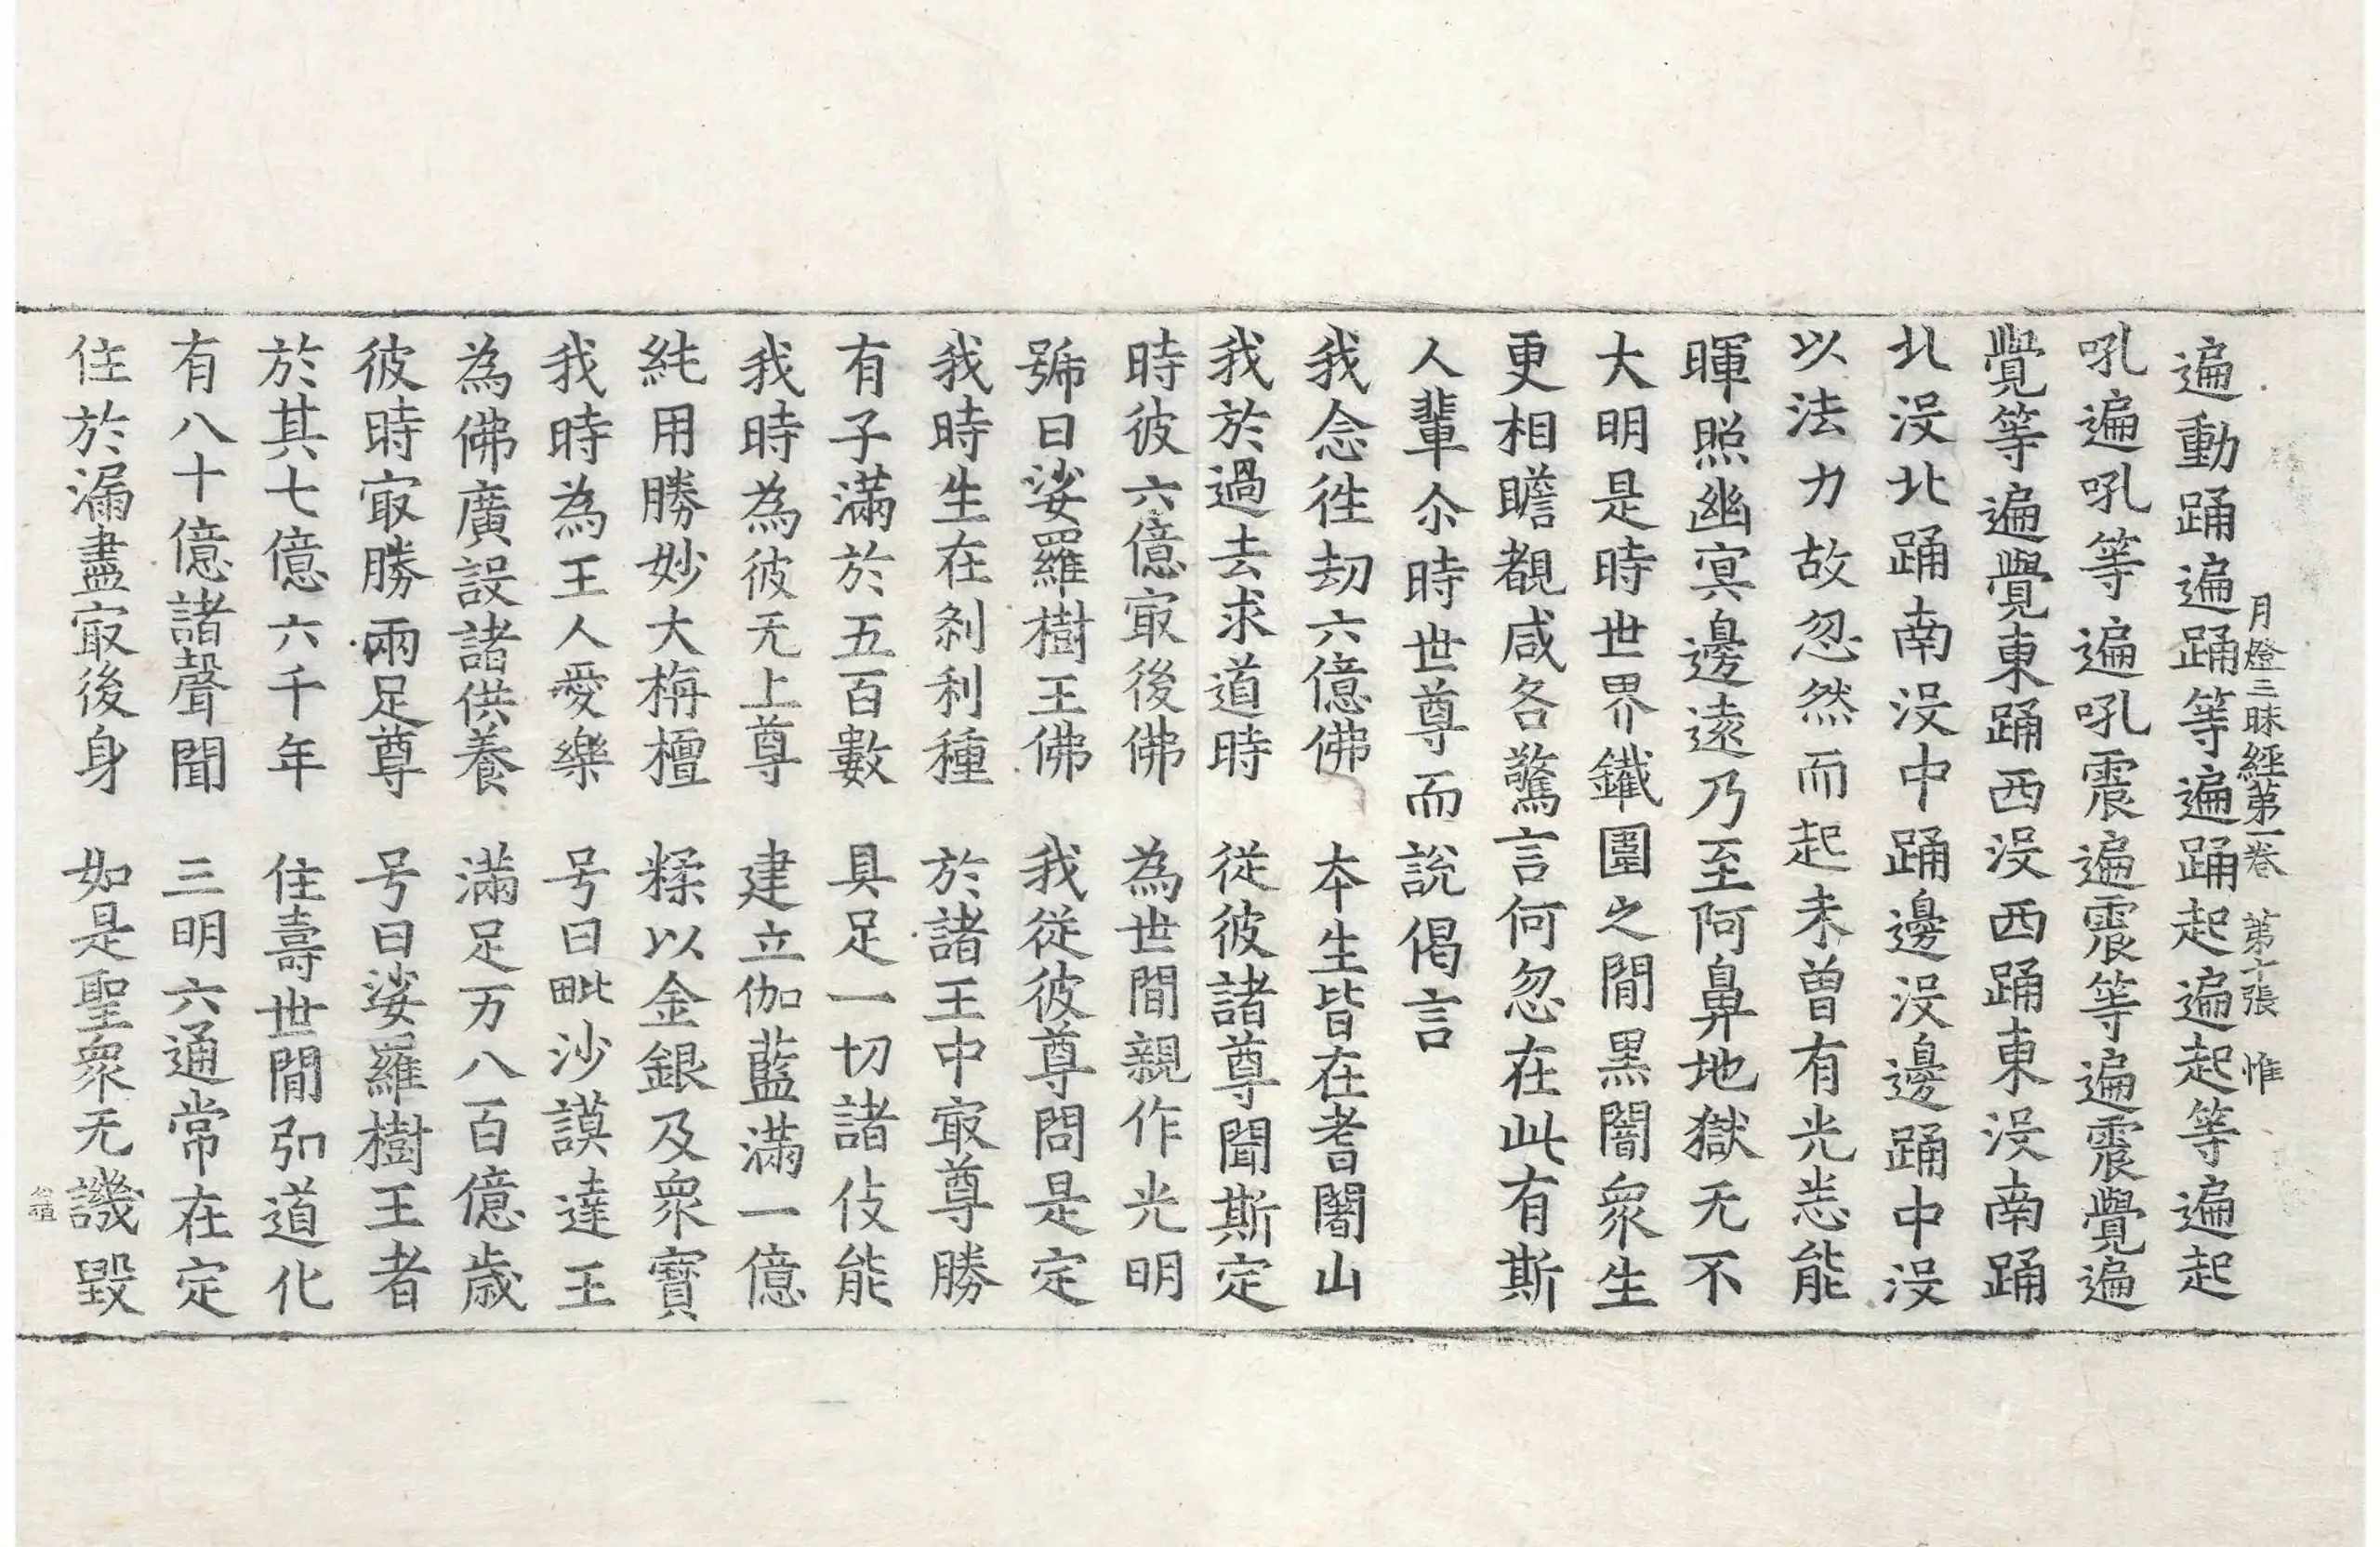 月燈三昧經第一卷 第十張 惟
遍動踊遍踊等遍踊起遍起等遍起
吼遍吼等遍吼震遍震等遍震覺遍
覺等遍覺東踊西没西踊東没南踊
北没北踊南没中踊邊没邊踊中没
以法力故忽然而起未曾有光恙能
暉照幽冥邊遠乃至阿鼻地獄无不
大明是時世界鐵圍之閒黒闇衆生
更相瞻覩咸各驚言何忽在此有斯
人輩尒時世尊而說偈言
我念徃劫六億佛 本生皆在耆闍山
我於過去求道時 従彼諸尊聞斯定
時彼六億㝡後佛 為世閒親作光明
號曰娑羅樹王佛 我従彼尊問是定
我時生在刹利種 於諸王中㝡尊勝
有子滿於五百數 具足一切諸伎能
我時為彼无上尊 建立伽藍滿一億
純用勝妙大栴檀 糅以金銀及衆寳
我時為王人愛樂 号曰毗沙謨達王
為佛廣設諸供養 滿足万八百億歲
彼時㝡勝兩足尊 号曰娑羅樹王者
於其七億六千年 住壽世閒弘道化
有八十億諸聲聞 三明六通常在定
住於漏盡㝡後身 如是聖衆无譏毀